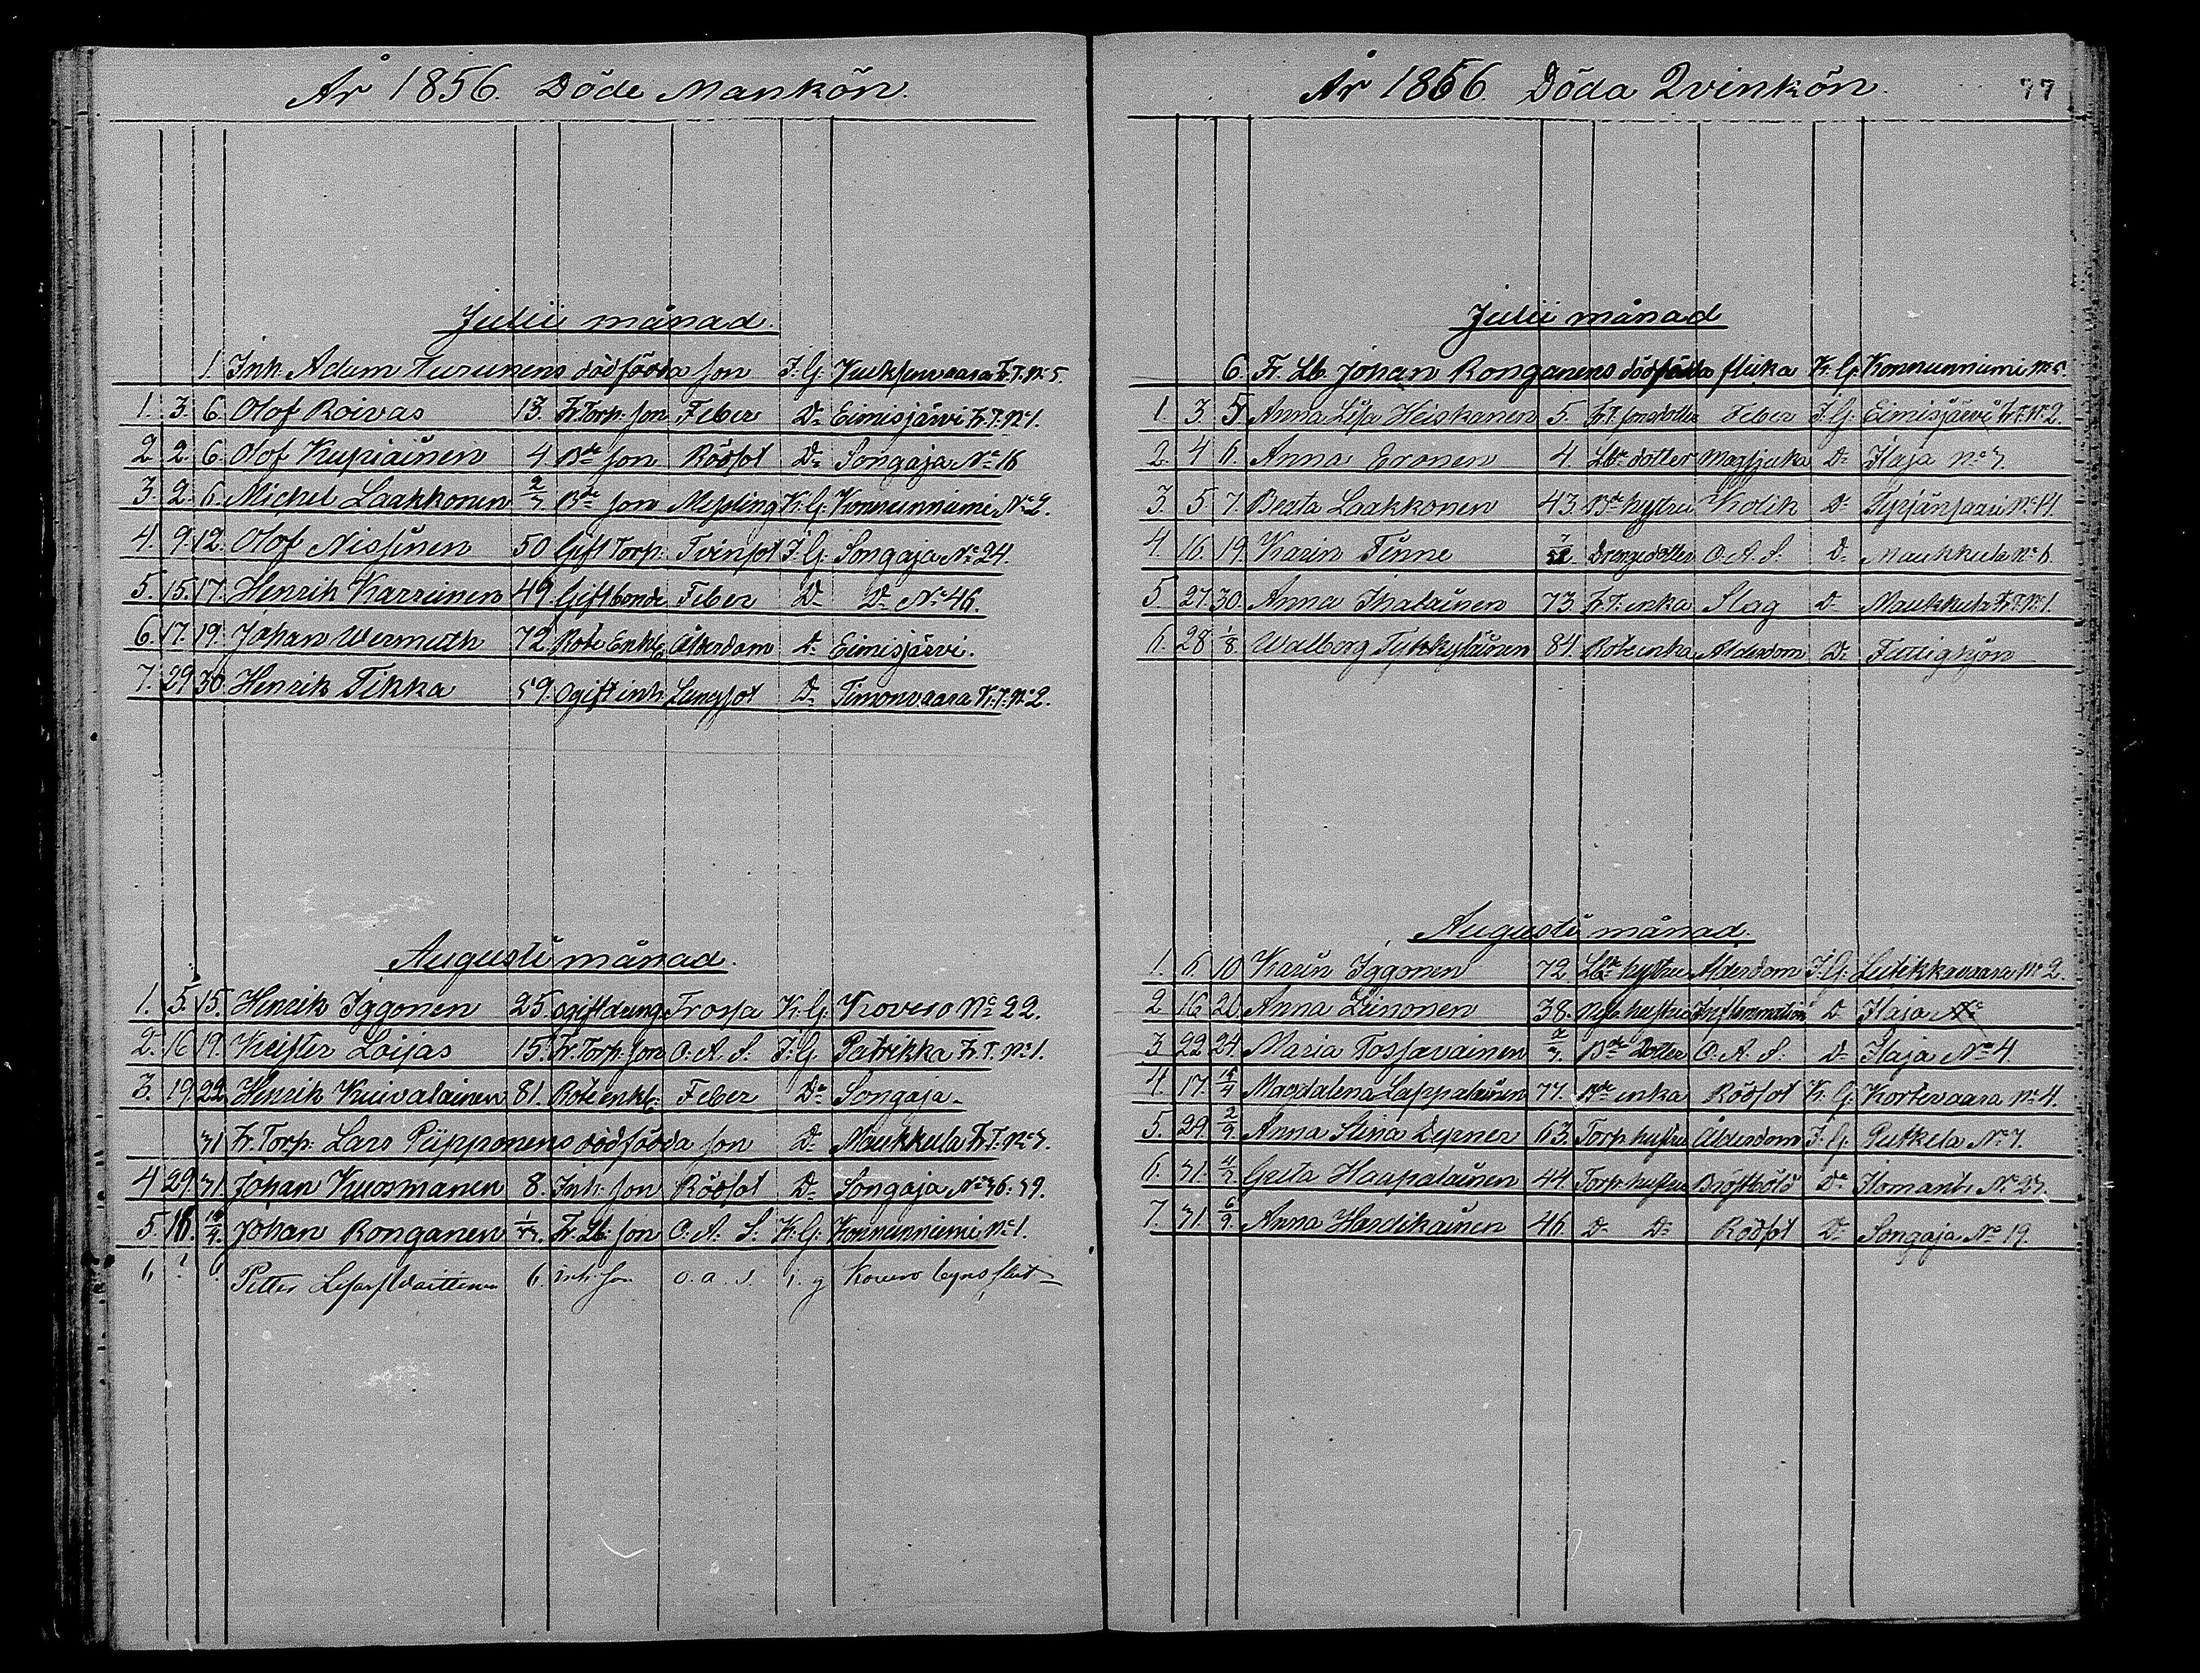 År 1856. Döde Mankön.
Julii månad.
1. Inh. Adam Turunens dödfödda son I. G. Vuoksenvaara Kr. T. No 5.
1. 3. 6. Olof Roivas 13. Kr. Torp. son Feber Do Eimisjärvi Kr. T. No 1.
2. 2. 6. Olof Kupiainen 4 Bde son Rödsot Do Songaja No 16
3. 2. 6. Michel Laakkonen 2/7 Bde son Messling K. G. Konnunniemi No 2.
4. 9. 12. Olof Nissinen 50 Gift Torp. Tvinsot I. G. Songaja No 24.
5. 15. 17. Henrik Karreinen 49. Gift bonde Feber Do Do No 46.
6. 17. 19. Johan Wermuth 72 Rote Enkl. Ålderdom Do Eimisjärvi.
7. 29 30. Henrik Tikka 59. Ogift inh. Lungsot Do Timonvaara Kr. T. No 2.
Augusti månad.
1. 5. 15. Henrik Iggonen 25. ogift dreng Frossa K. G. Kovero No 22.
2. 16 19. Keister Loijas 15. Kr. Torp. son O. A. S. I. G. Patrikka Kr. T. No 1.
3. 19. 22 Henrik Kuivalainen 81. Rote enkl. Feber Do Songaja.
31 Kr. Torp. Lars Piipponens dödfödda son Do Maukkula Kr. T. No 3.
4 29. 31 Johan Kuosmanen 8. Inh. son Rödsot Do Songaja No 36: 39.
5. 18. Johan Ronganen Kr. Lb. son O. A. S. K. G. Konnunniemi No 1.
6 Petter Waittinen 6. inh. son o. a. s. Kovero
År 1856. Döda Qvinkön. 77
Julii månad
6. Kr. Lb. Johan Ronganens dödfödda flicka K. G. Konnunniemi No 5.
1. 3. 5. Anna Lisa Heiskanen 5. Kr. T. sonsdotter Feber I. G. Eimisjärvi Kr. T. No 2.
2. 4 6. Anna Eronen 4. Lbde dotter Magsjuka Do Ilaja No 3.
3. 5. 7. Berta Laakkonen 43 Bde hustru Kolik Do Tyrjänsaari No 14.
4. 16. 19. Karin Tinne Drengedotter O. A. S. D. Maukkula No 6.
5. 27. 30. Anna Ihalainen 73 Kr. T. enka Slag D. Maukkula Kr. T. No 1.
6. 28 1/8. Walborg Tykkyläinen 84. Rote enka Ålderdom Do Fattighjon
Augusti månad.
1. 6. 10 Karin Iggonen 72. Lbde hustru Ålderdom I. G. Lutikkavaara No 2.
2 16 20. Anna Leinonen 38. hustru Inflammation D Ilaja No
3 22 24. Maria Tossavainen 2/3. Bde dotter O. A. S. Do Ilaja No 4
4. 17. Magdalena Lappalainen 77. Bde enka Rödsot K. G. Kortevaara No 4.
5. 29. 2/9. Anna Stina Depner 63. Torp. hustru Ålderdom I. G. Putkela No 7.
6. 31. Greta Haapalainen 44. Torp. hustru Bröstböld Do Ilomants No 27.
7. 31. 6/9. Anna Hardikainen 46. Do Do Rödsot Do Songaja No 19.